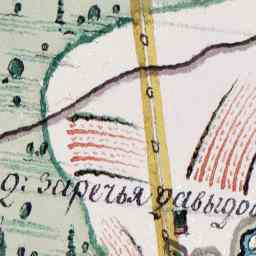 д: заречья давыдов